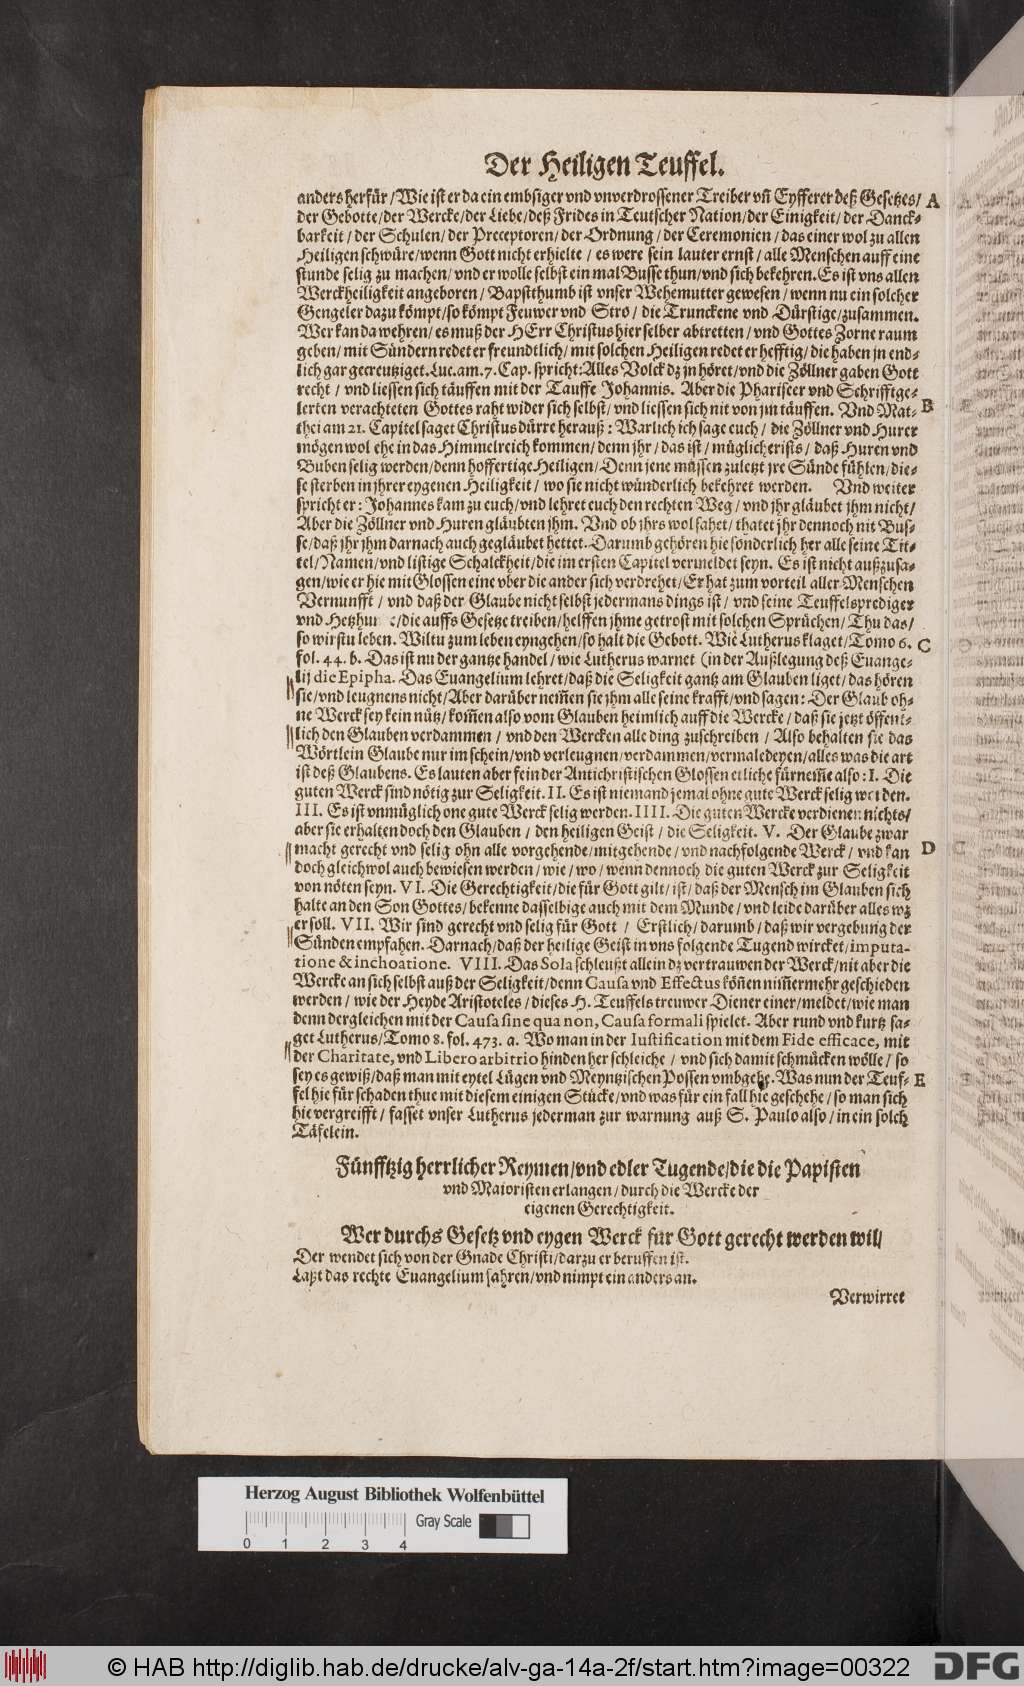 Der Heiligen Teuffel.
anders herfür / Wie ist er da ein embsiger vnd vnverdrossener Treiber vn̄ Eyfferer deß Gesetzes / A
der Gebotte / der Wercke / der Liebe / deß Frides in Teutscher Nation / der Einigkeit / der Danck-
barkeit / der Schulen / der Preceptoren / der Ordnung / der Ceremonien / das einer wol zu allen
Heiligen schwüre / wenn Gott nicht erhielte / es were sein lauter ernst / alle Menschen auff eine
stunde selig zu machen / vnd er wolle selbst ein mal Busse thun / vnd sich bekehren. Es ist vns allen
Werckheiligkeit angeboren / Bapstthumb ist vnser Wehemutter gewesen / wenn nu ein solcher
Gengeler dazu kömpt / so kömpt Feuwer vnd Stro / die Trunckene vnd Dürstige / zusammen.
Wer kan da wehren / es muß der HErr Christus hier selber abtretten / vnd Gottes Zorne raum
geben / mit Sündern redet er freundtlich / mit solchen Heiligen redet er hefftig / die haben jn end-
lich gar gecreutziget. Luc. am. 7. Cap. spricht: Alles Volck dz jn höret / vnd die Zöllner gaben Gott
recht / vnd liessen sich täuffen mit der Tauffe Johannis. Aber die Phariseer vnd Schrifftge-
lerten verachteten Gottes raht wider sich selbst / vnd liessen sich nit von jm täuffen. Vnd Mat- B
thei am 21. Capitel saget Christus dürre herauß: Warlich ich sage euch / die Zöllner vnd Hurer
mögen wol ehe in das Himmelreich kommen / denn jhr / das ist / müglicher ists / daß Huren vnd
Buben selig werden / denn hoffertige Heiligen / Denn jene müssen zuletzt jre Sünde fühlen / die-
se sterben in jhrer eygenen Heiligkeit / wo sie nicht wünderlich bekehret werden. Vnd weiter
spricht er: Johannes kam zu euch / vnd lehret euch den rechten Weg / vnd jhr gläubet jhm nicht /
Aber die Zöllner vnd Huren gläubten jhm. Vnd ob jhrs wol sahet / thatet jhr dennoch nit Bus-
se / daß jhr jhm darnach auch gegläubet hettet. Darumb gehören hie sonderlich her alle seine Tit-
tel / Namen / vnd listige Schalckheit / die im ersten Capitel vermeldet seyn. Es ist nicht außzusa-
gen / wie er hie mit Glossen eine vber die ander sich verdrehet / Er hat zum vorteil aller Menschen
Vernunfft / vnd daß der Glaube nicht selbst jedermans dings ist / vnd seine Teuffelsprediger
vnd / die auffs Gesetze treiben / helffen jhme getrost mit solchen Sprüchen / Thu das /
so wirstu leben. Wiltu zum leben eyngehen / so halt die Gebott. Wie Lutherus klaget / Tomo 6. C
fol. 44. b. Das ist nu der gantze handel / wie Lutherus warnet (in der Außlegung deß Euange-
lij die Epipha. Das Euangelium lehret / daß die Seligkeit gantz am Glauben liget / das hören
sie / vnd leugnens nicht / Aber darüber nem̄en sie jhm alle seine krafft / vnd sagen: Der Glaub oh-
ne Werck sey kein nütz / kom̄en also vom Glauben heimlich auff die Wercke / daß sie jetzt öffent-
lich den Glauben verdammen / vnd den Wercken alle ding zuschreiben / Also behalten sie das
Wörtlein Glaube nur im schein / vnd verleugnen / verdammen / vermaledeyen / alles was die art
ist deß Glaubens. Es lauten aber fein der Antichristischen Glossen etliche fürnem̄e also: I. Die
guten Werck sind nötig zur Seligkeit. II. Es ist niemand jemal ohne gute Werck selig worden.
III. Es ist vnmüglich one gute Werck selig werden. IIII. Die guten Wercke verdienen nichts /
aber sie erhalten doch den Glauben / den heiligen Geist / die Seligkeit. V. Der Glaube zwar
macht gerecht vnd selig ohn alle vorgehende / mitgehende / vnd nachfolgende Werck / vnd kan D
doch gleichwol auch bewiesen werden / wie / wo / wenn dennoch die guten Werck zur Seligkeit
von nöten seyn. VI. Die Gerechtigkeit / die für Gott gilt / ist / daß der Mensch im Glauben sich
halte an den Son Gottes / bekenne dasselbige auch mit dem Munde / vnd leide darüber alles wz
er soll. VII. Wir sind gerecht vnd selig für Gott / Erstlich / darumb / daß wir vergebung der
Sünden empfahen. Darnach / daß der heilige Geist in vns folgende Tugend wircket / imputa-
tione & inchoatione. VIII. Das Sola schleußt allein dz vertrauwen der Werck / nit aber die
Wercke an sich selbst auß der Seligkeit / denn Causa vnd Effectus kön̄en nim̄ermehr geschieden
werden / wie der Heyde Aristoteles / dieses H. Teuffels treuwer Diener einer / meldet / wie man
denn dergleichen mit der Causa sine qua non, Causa formali spielet. Aber rund vnd kurtz sa-
get Lutherus / Tomo 8. fol. 473. a. Wo man in der Iustification mit dem Fide efficace, mit
der Charitate, vnd Libero arbitrio hinden her schleiche / vnd sich damit schmücken wölle / so
sey es gewiß / daß man mit eytel Lügen vnd Meyntzischen Possen vmbgehe. Was nun der Teuf- E
fel hie für schaden thue mit diesem einigen Stücke / vnd was für ein fall hie geschehe / so man sich
hie vergreifft / fasset vnser Lutherus jederman zur warnung auß S. Paulo also / in ein solch
Täfelein.
Fünfftzig herrlicher Reymen / vnd edler Tugende / die die Papisten
vnd Maioristen erlangen / durch die Wercke der
eigenen Gerechtigkeit.
Wer durchs Gesetz vnd eygen Werck für Gott gerecht werden wil /
Der wendet sich von der Gnade Christi / darzu er beruffen ist.
Laßt das rechte Euangelium fahren / vnd nimpt ein anders an.
Verwirret
Herzog August Bibliothek Wolfenbüttel
Gray Scale
0 1 2 3 4
© HAB http://diglib.hab.de/drucke/alv-ga-14a-2f/start.htm?image=00322
DFG